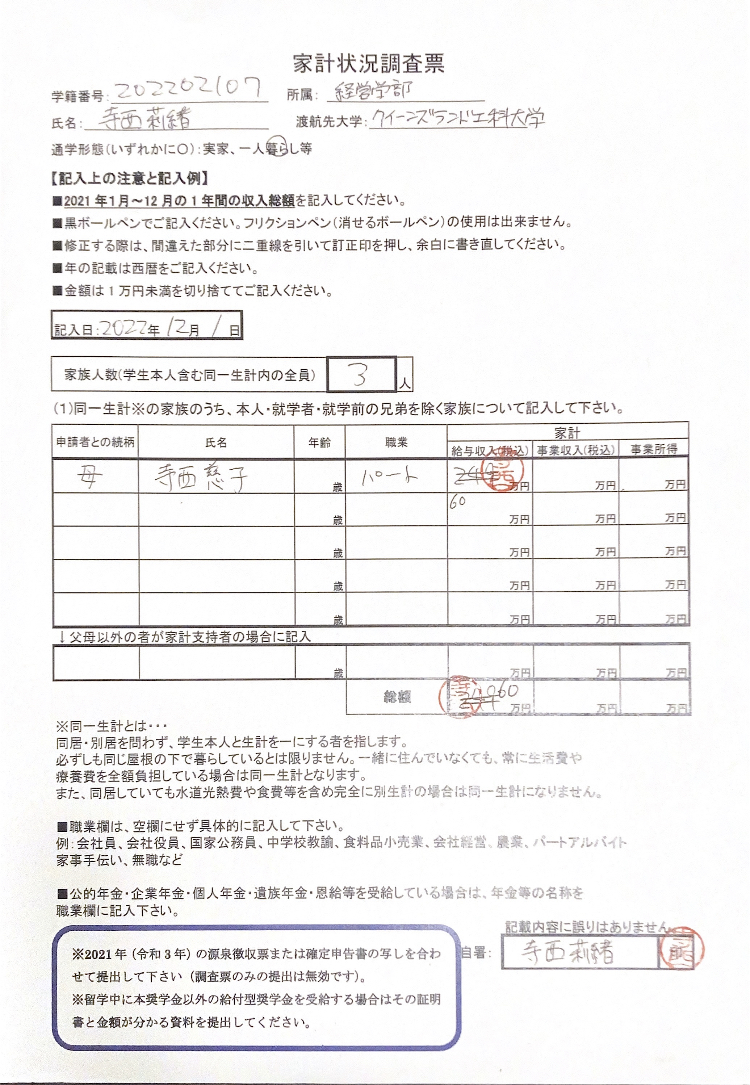 家計状況調査票
学籍番号: 202202107 所属: 経営学部
氏名: 寺西莉緒 渡航先大学: クイーンズランド工科大学
通学形態(いずれかに○): 実家、一人暮らし等
【記入上の注意と記入例】
■2021年1月～12月の1年間の収入総額を記入してください。
■黒ボールペンでご記入ください。フリクションペン(消せるボールペン)の使用は出来ません。
■修正する際は、間違えた部分に二重線を引いて訂正印を押し、余白に書き直してください。
■年の記載は西暦をご記入ください。
■金額は1万円未満を切り捨ててご記入ください。
記入日:2022年12月1日
家族人数(学生本人含む同一生計内の全員) 3人
(1)同一生計※の家族のうち、本人・就学者・就学前の兄弟を除く家族について記入して下さい。
申請者との続柄 氏名 年齢 職業 家計
給与収入(税込) 事業収入(税込) 事業所得
母 寺西慈子 歳 パート 万円 万円 万円
60
歳 万円 万円 万円
歳 万円 万円 万円
歳 万円 万円 万円
歳 万円 万円 万円
↓父母以外の者が家計支持者の場合に記入
歳 万円 万円 万円
総額 60 万円 万円 万円
※同一生計とは・・・
同居・別居を問わず、学生本人と生計を一にする者を指します。
必ずしも同じ屋根の下で暮らしているとは限りません。一緒に住んでいなくても、常に生活費や
療養費を全額負担している場合は同一生計となります。
また、同居していても水道光熱費や食費等を含め完全に別生計の場合は同一生計になりません。
■職業欄は、空欄にせず具体的に記入して下さい。
例:会社員、会社役員、国家公務員、中学校教諭、食料品小売業、会社経営、農業、パートアルバイト
家事手伝い、無職など
■公的年金・企業年金・個人年金・遺族年金・恩給等を受給している場合は、年金等の名称を
職業欄に記入下さい。
記載内容に誤りはありません。
自署: 寺西莉緒
※2021年(令和3年)の源泉徴収票または確定申告書の写しを合わ
せて提出して下さい(調査票のみの提出は無効です)。
※留学中に本奨学金以外の給付型奨学金を受給する場合はその証明
書と金額が分かる資料を提出してください。